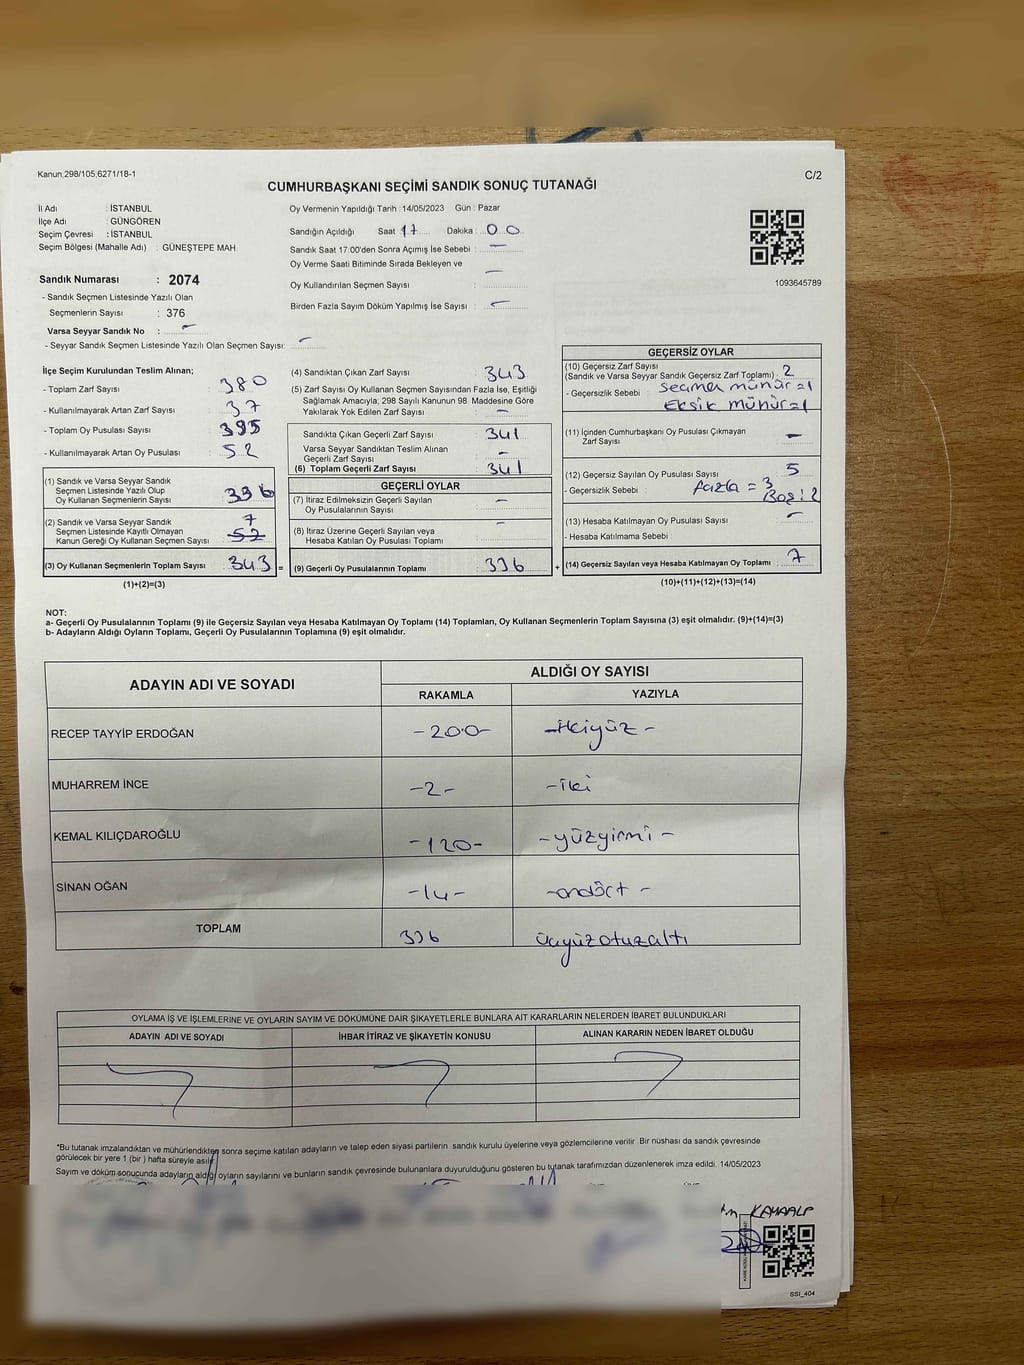 Kanun;298/105;6271/18-1
C/2
CUMHURBAŞKANI SEÇİMİ SANDIK SONUÇ TUTANAĞI
İl Adı : İSTANBUL
İlçe Adı : GÜNGÖREN
Seçim Çevresi : İSTANBUL
Seçim Bölgesi (Mahalle Adı) : GÜNEŞTEPE MAH
Sandık Numarası : 2074
- Sandık Seçmen Listesinde Yazılı Olan
Seçmenlerin Sayısı : 376
Varsa Seyyar Sandık No : -
- Seyyar Sandık Seçmen Listesinde Yazılı Olan Seçmen Sayısı: -
Oy Vermenin Yapıldığı Tarih : 14/05/2023 Gün : Pazar
Sandığın Açıldığı Saat 17 Dakika : 00
Sandık Saat 17:00'den Sonra Açımış İse Sebebi : -
Oy Verme Saati Bitiminde Sırada Bekleyen ve
Oy Kullandırılan Seçmen Sayısı : -
Birden Fazla Sayım Döküm Yapılmış İse Sayısı : -
1093645789
İlçe Seçim Kurulundan Teslim Alınan;
- Toplam Zarf Sayısı : 380
- Kullanılmayarak Artan Zarf Sayısı : 37
- Toplam Oy Pusulası Sayısı : 395
- Kullanılmayarak Artan Oy Pusulası : 52
(1) Sandık ve Varsa Seyyar Sandık
Seçmen Listesinde Yazılı Olup
Oy Kullanan Seçmenlerin Sayısı : 336
(2) Sandık ve Varsa Seyyar Sandık 7
Seçmen Listesinde Kayıtlı Olmayan
Kanun Gereği Oy Kullanan Seçmen Sayısı : 52
(3) Oy Kullanan Seçmenlerin Toplam Sayısı : 343 =
(1)+(2)=(3)
(4) Sandıktan Çıkan Zarf Sayısı : 343
(5) Zarf Sayısı Oy Kullanan Seçmen Sayısından Fazla İse, Eşitliği
Sağlamak Amacıyla, 298 Sayılı Kanunun 98. Maddesine Göre
Yakılarak Yok Edilen Zarf Sayısı : -
Sandıkta Çıkan Geçerli Zarf Sayısı : 341
Varsa Seyyar Sandıktan Teslim Alınan
Geçerli Zarf Sayısı : -
(6) Toplam Geçerli Zarf Sayısı : 341
GEÇERLİ OYLAR
(7) İtiraz Edilmeksizin Geçerli Sayılan
Oy Pusulalarının Sayısı : -
(8) İtiraz Üzerine Geçerli Sayılan veya
Hesaba Katılan Oy Pusulası Toplamı : -
(9) Geçerli Oy Pusulalarının Toplamı : 336 +
GEÇERSİZ OYLAR
(10) Geçersiz Zarf Sayısı
(Sandık ve Varsa Seyyar Sandık Geçersiz Zarf Toplamı) : 2
- Geçersizlik Sebebi : seçmen mühür =1
Eksik mühür=1
(11) İçinden Cumhurbaşkanı Oy Pusulası Çıkmayan
Zarf Sayısı : -
(12) Geçersiz Sayılan Oy Pusulası Sayısı : 5
- Geçersizlik Sebebi : fazla = 3
Boş: 2
(13) Hesaba Katılmayan Oy Pusulası Sayısı : -
- Hesaba Katılmama Sebebi :
(14) Geçersiz Sayılan veya Hesaba Katılmayan Oy Toplamı : 7
(10)+(11)+(12)+(13)=(14)
NOT:
a- Geçerli Oy Pusulalarının Toplamı (9) ile Geçersiz Sayılan veya Hesaba Katılmayan Oy Toplamı (14) Toplamları, Oy Kullanan Seçmenlerin Toplam Sayısına (3) eşit olmalıdır. (9)+(14)=(3)
b- Adayların Aldığı Oyların Toplamı, Geçerli Oy Pusulalarının Toplamına (9) eşit olmalıdır.
ADAYIN ADI VE SOYADI ALDIĞI OY SAYISI
RAKAMLA YAZIYLA
RECEP TAYYİP ERDOĞAN -200- -ikiyüz-
MUHARREM İNCE -2- -iki
KEMAL KILIÇDAROĞLU -120- -yüzyirmi-
SİNAN OĞAN -14- -ondört-
TOPLAM 336 üçyüzotuzaltı
OYLAMA İŞ VE İŞLEMLERİNE VE OYLARIN SAYIM VE DÖKÜMÜNE DAİR ŞİKAYETLERLE BUNLARA AİT KARARLARIN NELERDEN İBARET BULUNDUKLARI
ADAYIN ADI VE SOYADI İHBAR İTİRAZ VE ŞİKAYETİN KONUSU ALINAN KARARIN NEDEN İBARET OLDUĞU
*Bu tutanak imzalandıktan ve mühürlendikten sonra seçime katılan adayların ve talep eden siyasi partilerin sandık kurulu üyelerine veya gözlemcilerine verilir. Bir nüshası da sandık çevresinde
görülecek bir yere 1 (bir) hafta süreyle asılır.
Sayım ve döküm sonucunda adayların aldığı oyların sayılarını ve bunların sandık çevresinde bulunanlara duyurulduğunu gösteren bu tutanak tarafımızdan düzenlenerek imza edildi. 14/05/2023
KAYAALP
SSI_404